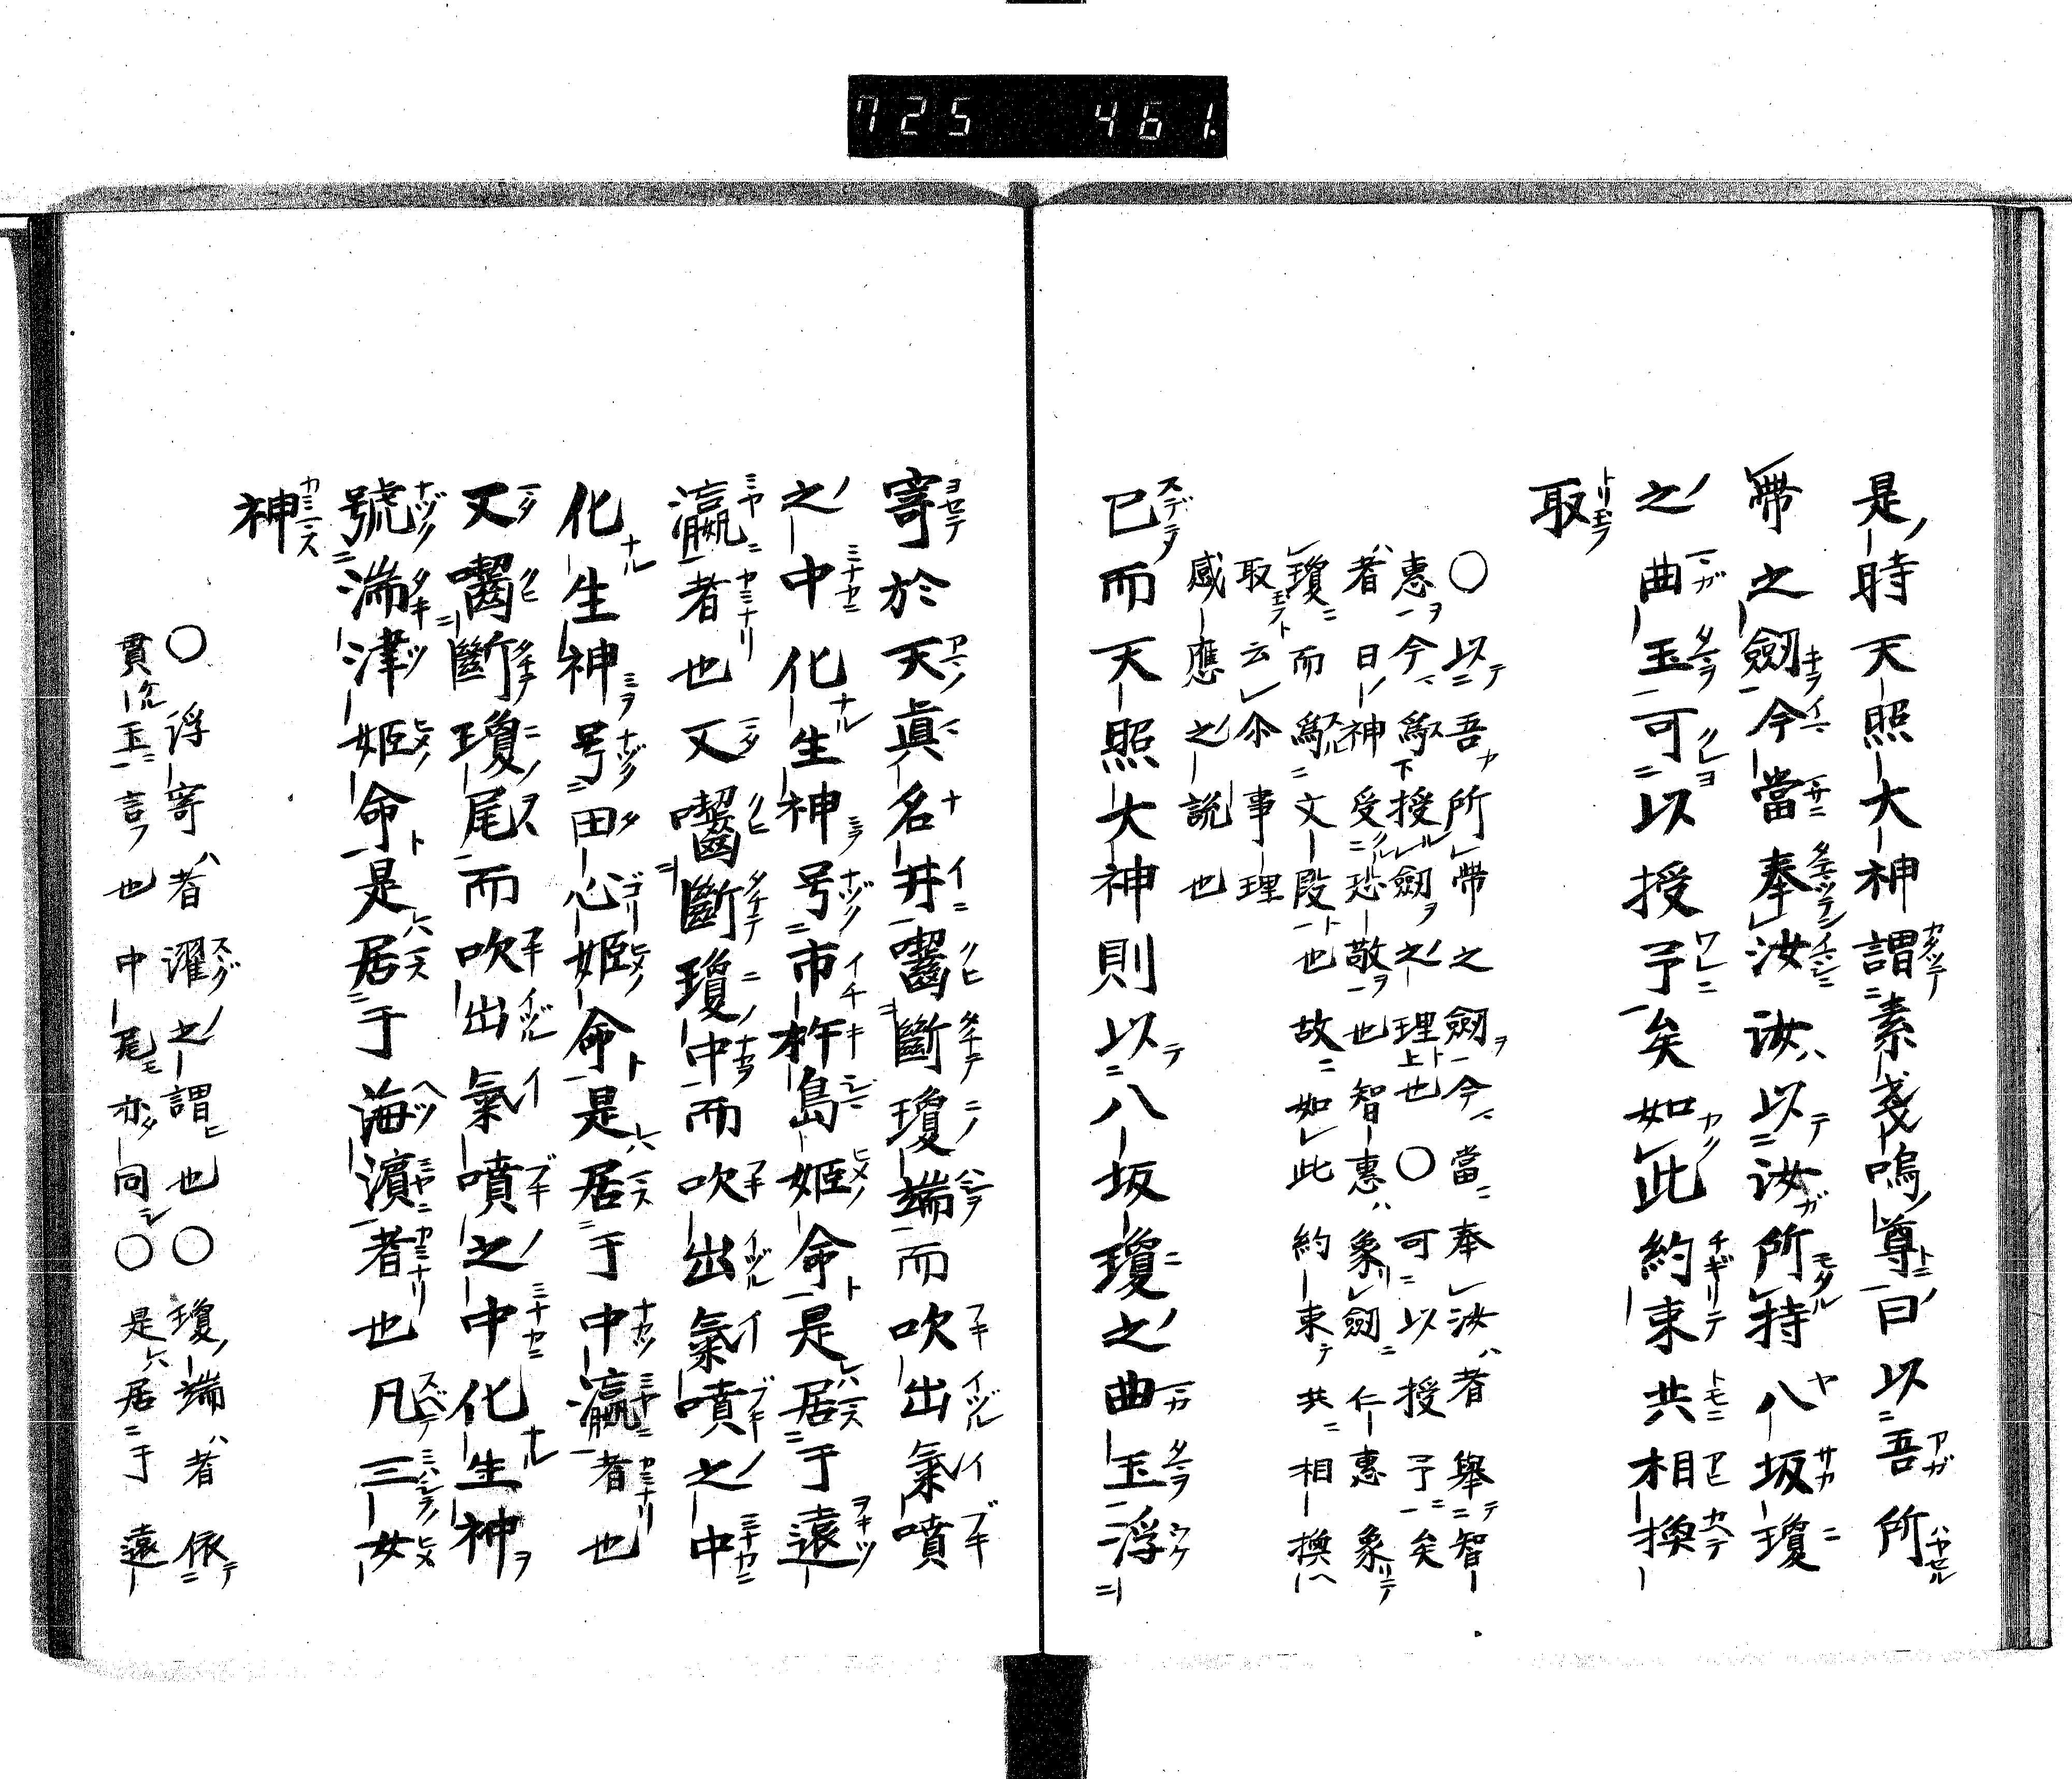 725 461
是時天照大神謂素戔嗚尊曰以吾所
帶之劔今當奉汝汝以汝所持八坂瓊
之曲玉可以授予矣如此約束共相換
取
○以吾所帶之劔今當奉汝者擧智
惠今爲授劔之理也○可以授予矣
者日神受恐敬也智惠象劔仁惠象
瓊而爲文段也故如此約束共相換
取云尒事理
感應之説也
已而天照大神則以八坂瓊之曲玉浮
寄於天眞名井囓斷瓊端而吹出氣噴
之中化生神号市杵島姬命是居于遠
瀛者也又囓斷瓊中而吹出氣噴之中
化生神号田心姬命是居于中瀛者也
又囓斷瓊尾而吹出氣噴之中化生神
號湍津姬命是居于海濱者也凡三女
神
○浮寄者濯之謂也○瓊端者依
貫玉言也中尾亦同○是居于遠